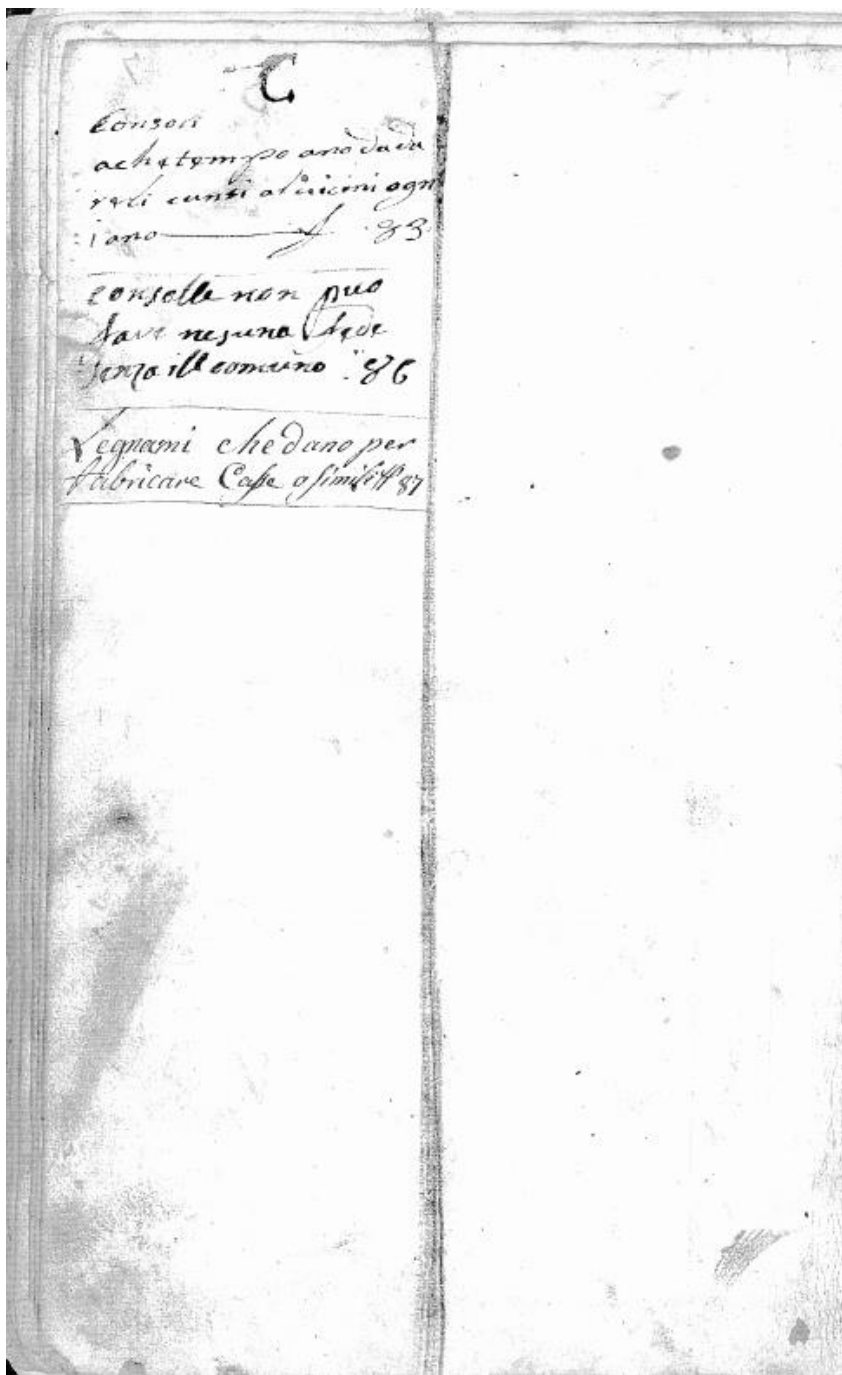 C
Consoli
a che tempo ano da da
re li cunti al vicini ogn
i ano f 83
Consolle non puo
fare nesuna fede
senza ill comuno 86
Legnami che dano per
fabricare Case o simili ff 87